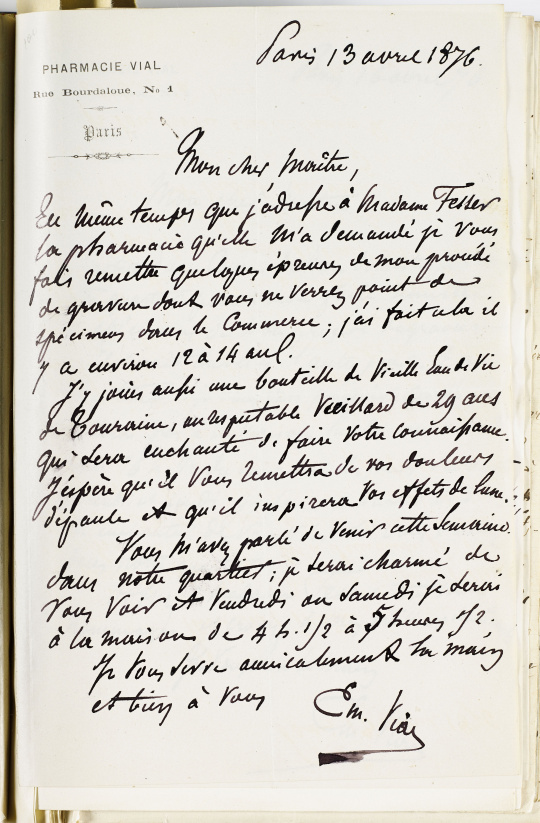 PHARMACIE VIAL
Rue Bourdaloue, No 1
Paris
Paris 13 avril 1876.
Mon cher maître,
En même temps que j'adresse à Madame Fesser
la pharmacie qu'elle m'a demandé je vous
fais remettre quelques épreuves de mon procédé
de gravure dont vous ne verrez point de
spécimens dans le Commerce ; j'ai fait cela il
y a environ 12 à 14 ans.
J'y joins aussi une bouteille de Vieille Eau de Vie
de Touraine, un respectable Vieillard de 29 ans
qui sera enchanté de faire votre connaissance.
J'espère qu'il vous remettra de vos douleurs
d'épaule et qu'il inspirera vos effets de lune.
Vous m'avez parlé de venir cette semaine
dans notre quartier ; je serai charmé de
vous voir et Vendredi ou Samedi je serai
à la maison de 4 h. 1/2 à 5 heures 1/2.
Je vous serre amicalement la main
et bien à vous
Em. Vial